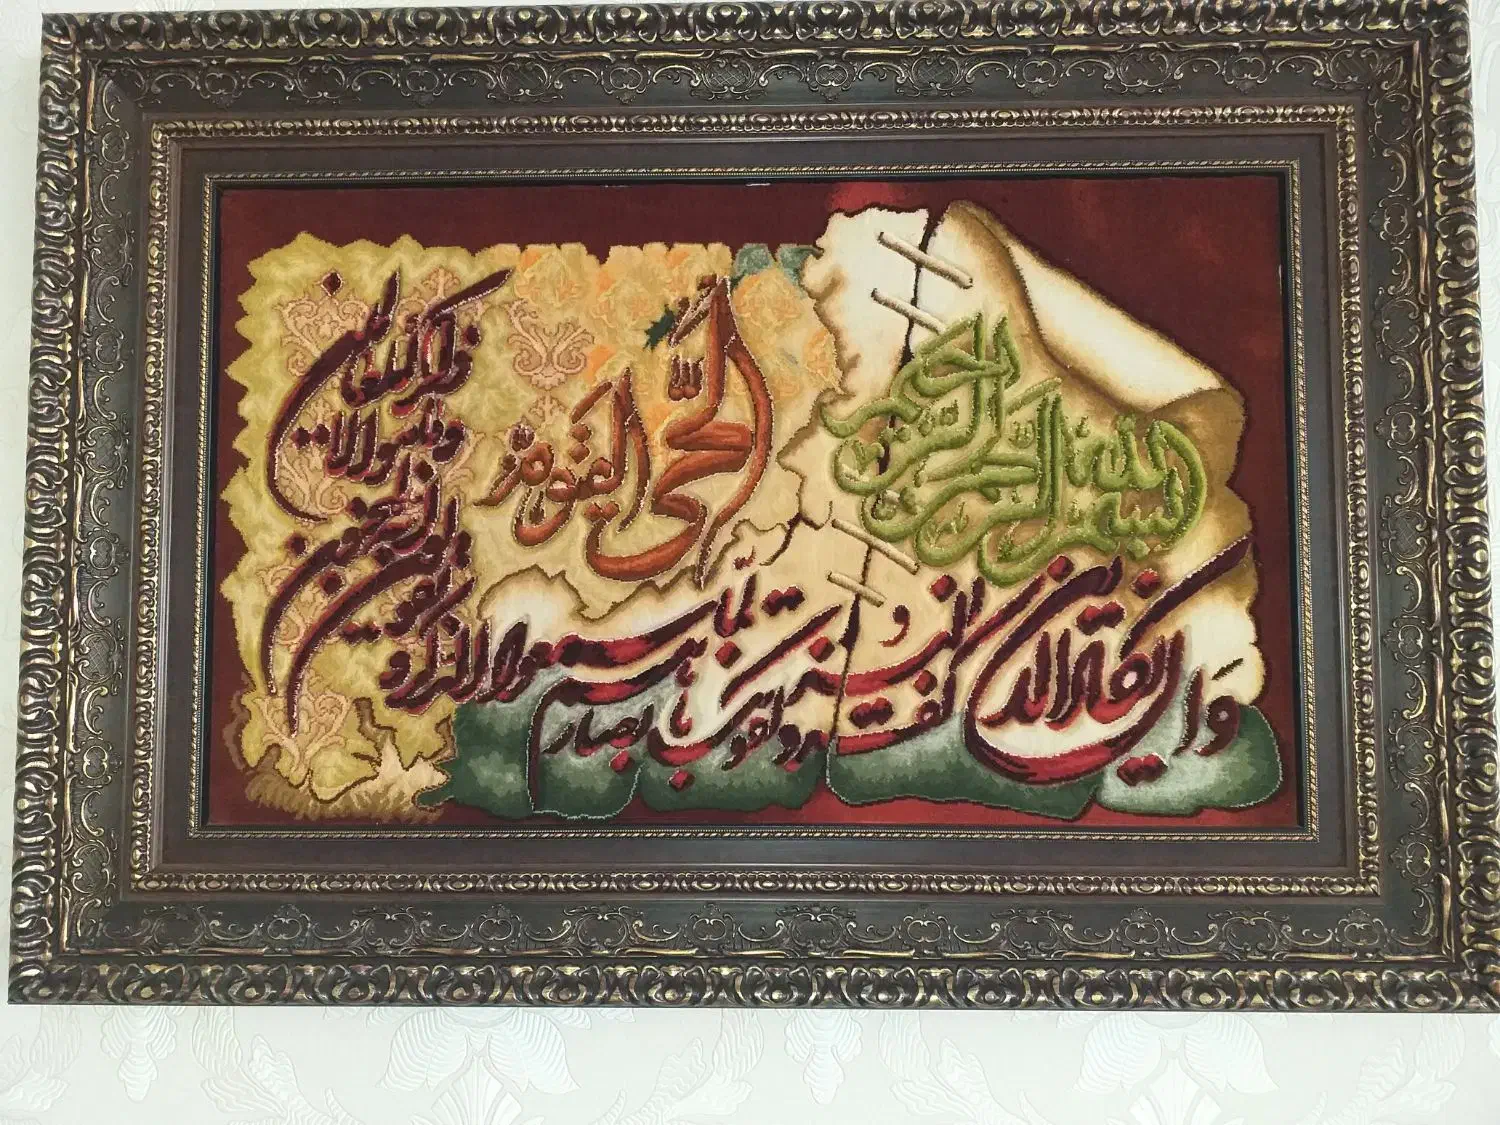 بسم الله الرحمن الرحيم
الحي القيوم
وان يكاد الذين كفروا ليزلقونك بابصارهم
لما سمعوا الذكر و
يقولون انه لمجنون
و ما هو الا
ذكر للعالمين